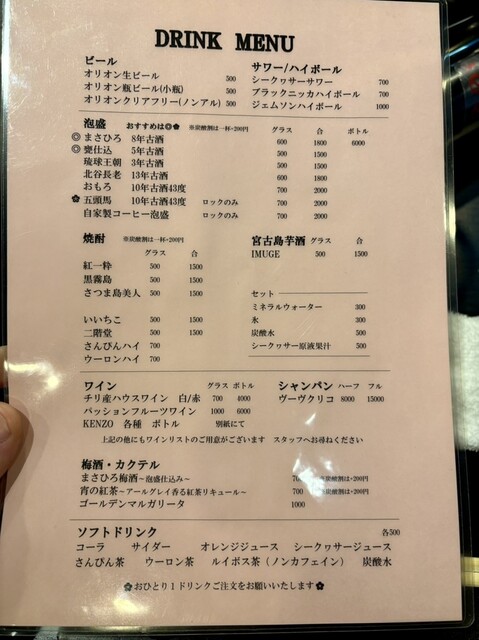 DRINK MENU
ビール
オリオン生ビール 500
オリオン瓶ビール(小瓶) 500
オリオンクリアフリー(ノンアル) 500
サワー/ハイボール
シークヮサーサワー 700
ブラックニッカハイボール 700
ジェムソンハイボール 1000
泡盛 おすすめは◎✿ ※炭酸割は一杯+200円 グラス 合 ボトル
◎ まさひろ 8年古酒 600 1800 6000
◎ 甕仕込 5年古酒 500 1500
琉球王朝 3年古酒 500 1500
北谷長老 13年古酒 600 1800
おもろ 10年古酒43度 700 2000
✿ 五頭馬 10年古酒43度 ロックのみ 700 2000
自家製コーヒー泡盛 ロックのみ 700 2000
焼酎 ※炭酸割は一杯+200円
グラス 合
紅一粋 500 1500
黒霧島 500 1500
さつま島美人 500 1500
いいちこ 500 1500
二階堂 500 1500
さんぴんハイ 700
ウーロンハイ 700
宮古島芋酒 グラス 合
IMUGE 500 1500
セット
ミネラルウォーター 300
氷 300
炭酸水 500
シークヮサー原液果汁 500
ワイン グラス ボトル
チリ産ハウスワイン 白/赤 700 4000
パッションフルーツワイン 1000 6000
KENZO 各種 ボトル 別紙にて
シャンパン ハーフ フル
ヴーヴクリコ 8000 15000
上記の他にもワインリストのご用意がございます スタッフへお尋ねください
梅酒・カクテル
まさひろ梅酒～泡盛仕込み～ 炭酸割は+200円
宵の紅茶～アールグレイ香る紅茶リキュール～ 700 炭酸割は+200円
ゴールデンマルガリータ 1000
ソフトドリンク 各500
コーラ サイダー オレンジジュース シークヮサージュース
さんぴん茶 ウーロン茶 ルイボス茶(ノンカフェイン) 炭酸水
✿おひとり1ドリンクご注文をお願いいたします✿